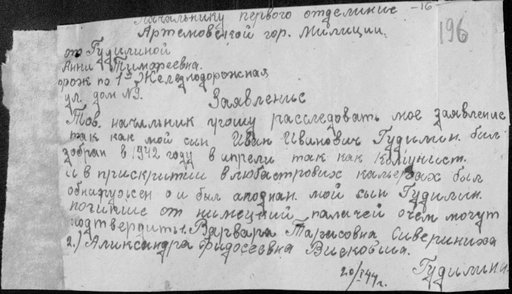 Начальнику первого отделение -16-
Артемовской гор. Милиции. 196
от Гудилиной
Анны Тимофеевна.
прож по 1й Железнодорожная
ул. дом №9.
Заявление
Тов. начальник прошу расследовать мое заявление
так как мой син Иван Иванович Гудилин. бил
забран в 1942 году в апрели так как комунист.
и в прискритии в любастрових камерах был
обнаружен и бил апознан. мой сын Гудилин.
погибшие от нимецких палачей о чем могут
подтвердить 1. Варвара Тарасовна Сивериниха
2.) Александра Федосеевна
20/ 44г. Гудилина